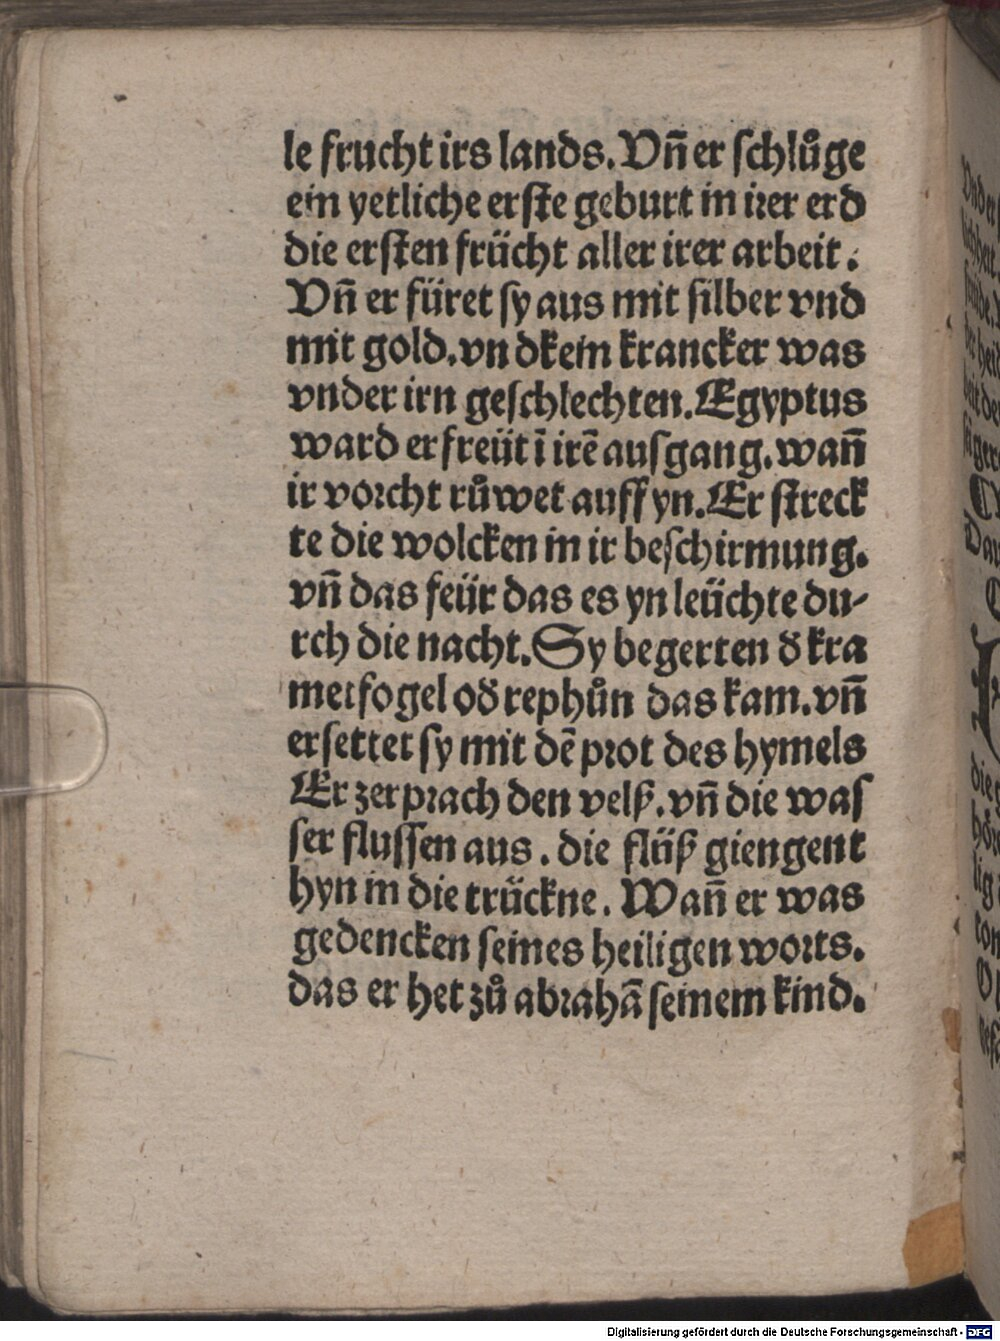 le frucht irs lands. Vn̄ er ſchlůge
ein yetliche erſte geburt in irer erd
die erſten frücht aller irer arbeit.
Vn̄ er füret ſy aus mit ſilber vnd
mit gold. vn dkein krancker was
vnder irn geſchlechten. Egyptus
ward erfreüt ī irē ausgang. wan̄
ir vorcht růwet auff yn. Er ſtreck
te die wolcken in ir beſchirmung.
vn̄ das feür das es yn leüchte du-
rch die nacht. Sy begerten ď kra
metfogel oď rephůn das kam. vn̄
erſettet ſy mit dē prot des hymels
Er zerprach den velß. vn̄ die waſ
ſer fluſſen aus. die flüß giengent
hyn in die trückne. Wan̄ er was
gedencken ſeines heiligen worts.
das er het zů abrahā ſeinem kind.
Digitalisierung gefördert durch die Deutsche Forschungsgemeinschaft - DFG